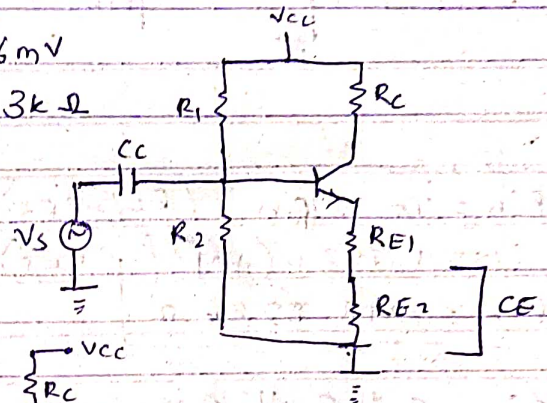 VCC
6mV
3k Ω
R1
RC
CC
VS
R2
RE1
RE2
CE
VCC
RC